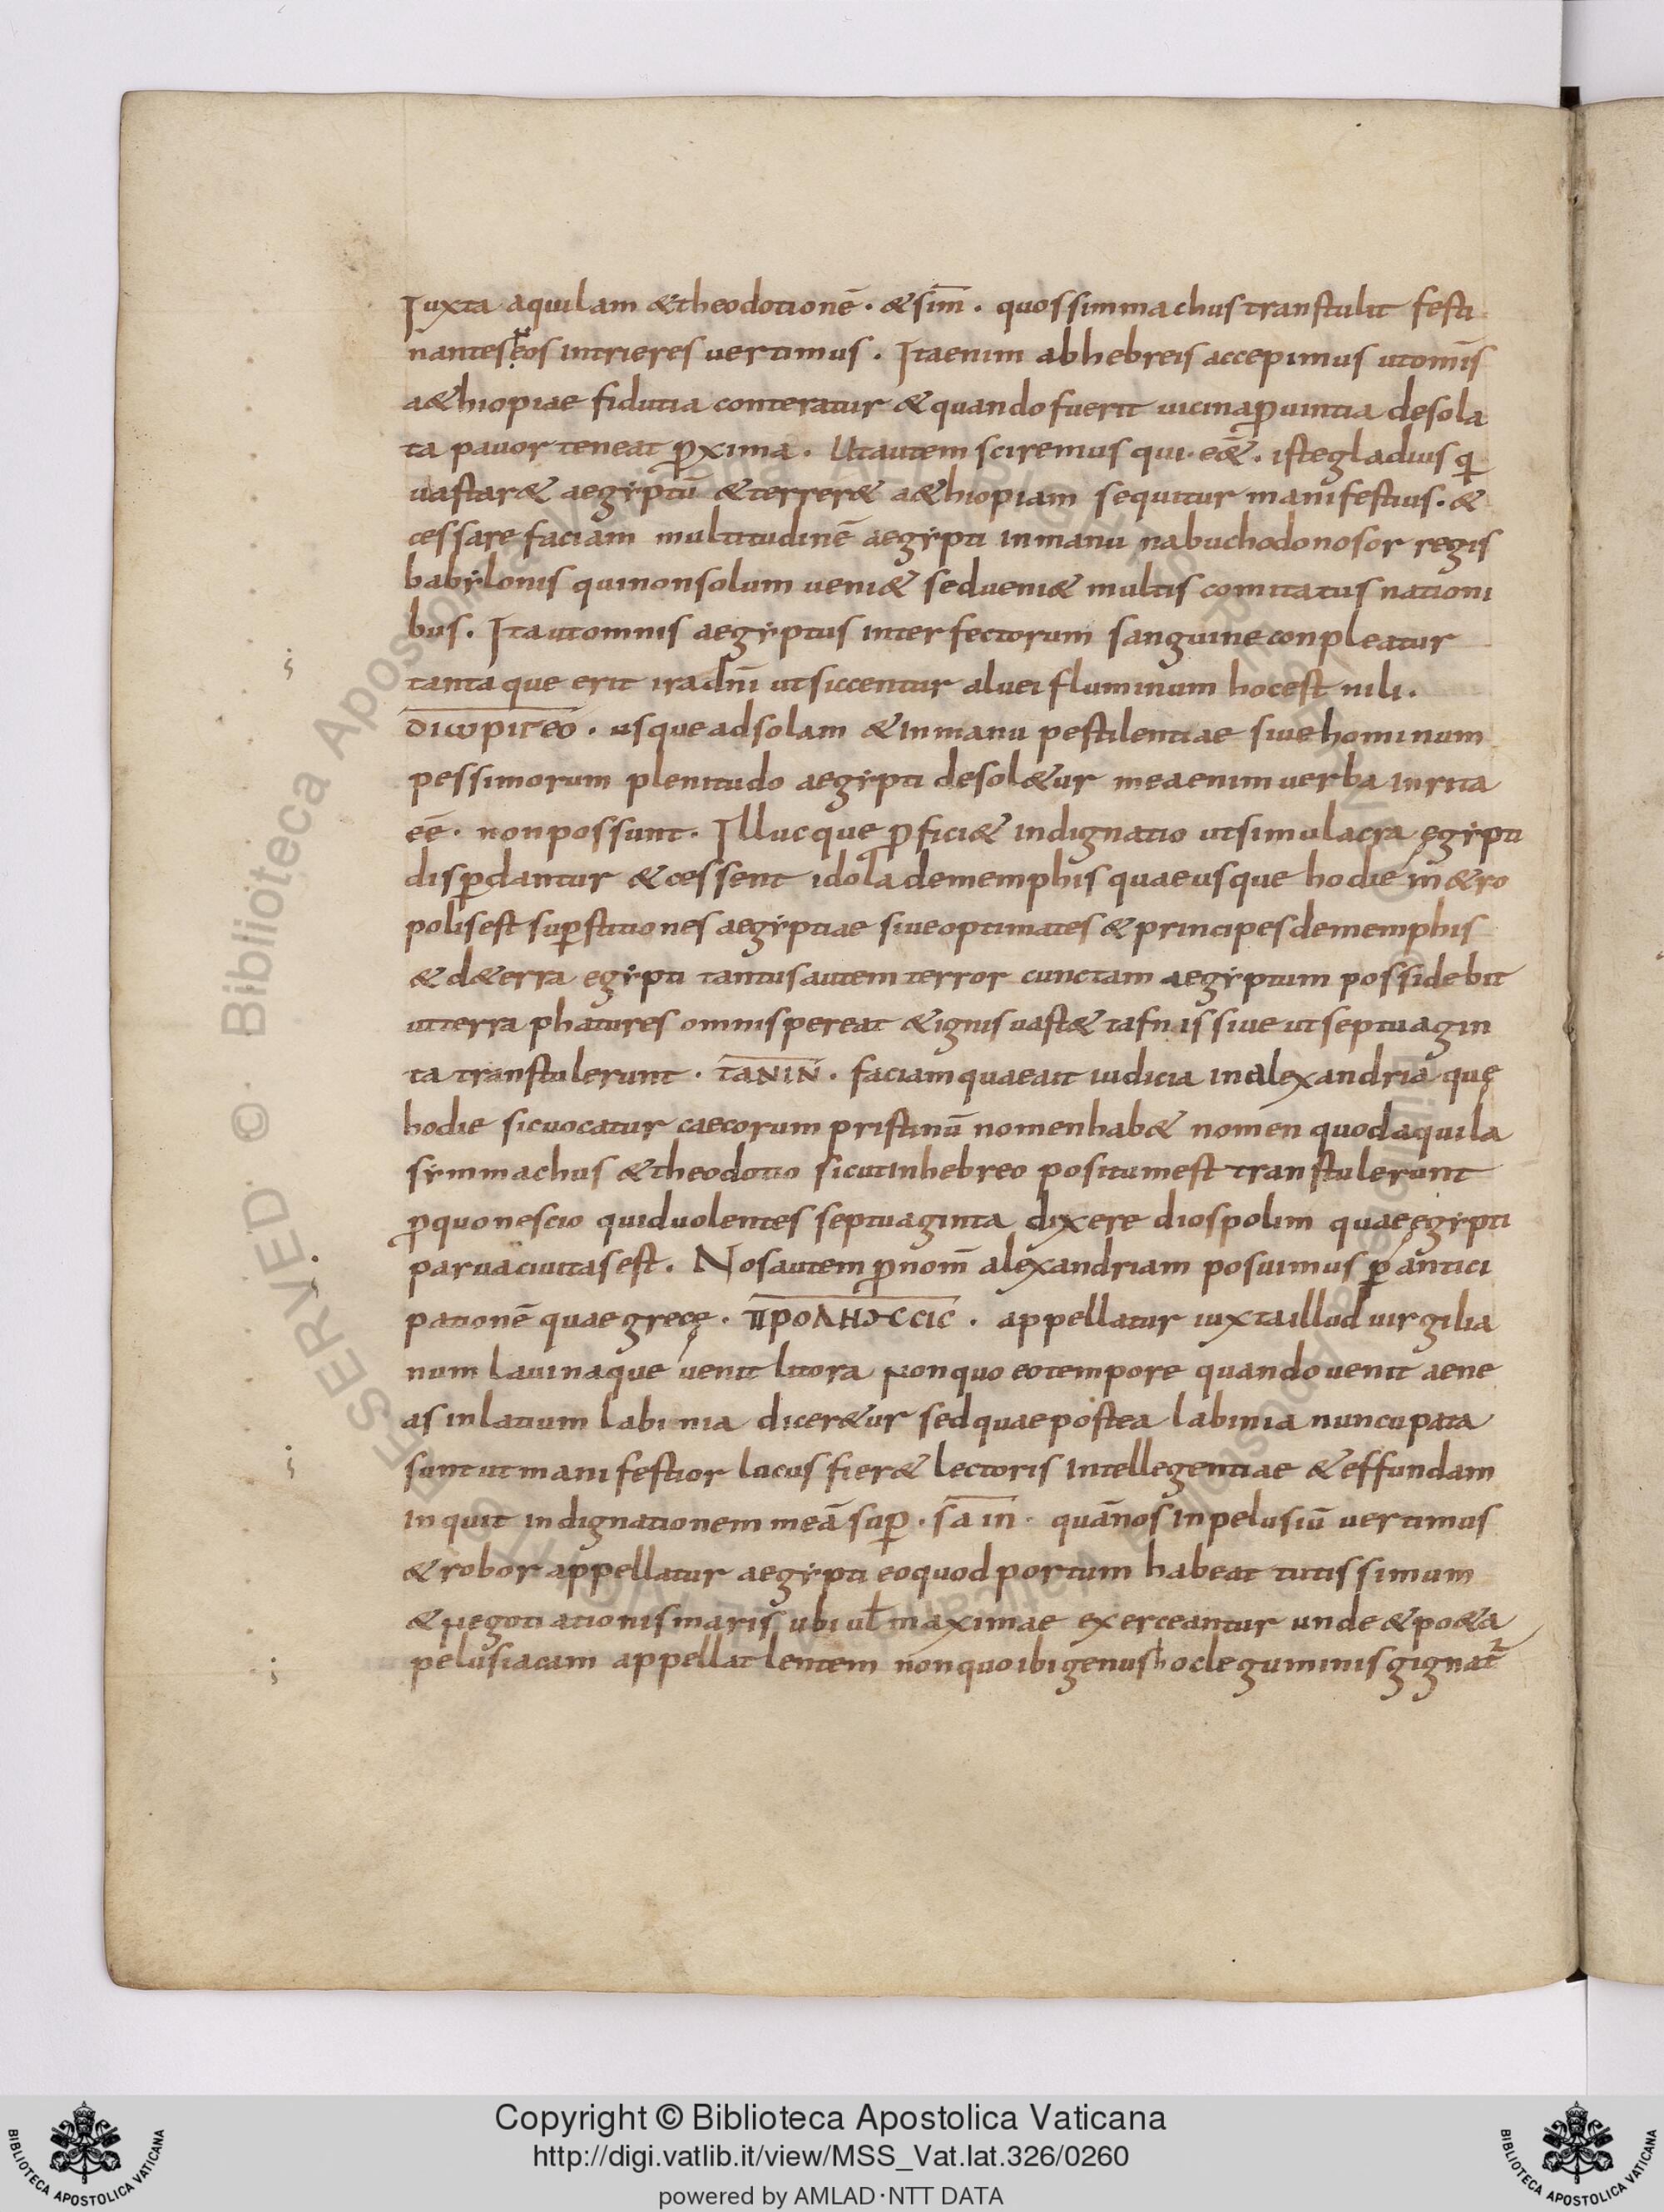 Iuxta aquilam & theodotionē · & sim̄ · quos simmachus transtulit festi
nantes eos in trieres uertimus . Ita enim ab hebreis accepimus ut om̄is
a&hiopiae fidutia conteratur & quando fuerit uicina ꝓuintia desola
ta pauor teneat ꝓxima . Ut autem sciremus qui · e&̄ . iste gladius qi
uastar& aegẏptū & terrer& a&hiopiam sequitur manifestius . &
cessare faciam multitudinē aegẏpti in manu nabuchodonosor regis
babẏlonis qui non solum ueni& sed ueni& multis comitatus nationi
bus . Ita ut omnis aegẏptus interfectorum sanguine conpleatur
tantaque erit ira dn̄i ut siccentur aluei fluminum hoc est nili .
διωριτεο . usque ad solam & in manu pestilentiae siue hominum
pessimorum plenitudo aegẏpti desol&ur mea enim uerba inrita
eē · non possunt . Illucque ꝓfici& indignatio ut simulacra ęgẏpti
disꝑdantur & cessent idola de memphis quae usque hodie m&ro
polis est suꝑstitiones aegẏptiae siue optimates & principes de memphis
& d& erra egẏpti tantus autem terror cunctam aegẏptum possidebit
ut terra phatures omnis pereat & ignis uast& tafnis siue ut septuagin
ta transtulerunt . TANIN . faciam quae ait iudicia in alexandria quę
hodie sic uocatur caecorum pristinū nomen hab& nomen quod aquila
sẏmmachus & theodotio sicut in hebreo positum est transtulerunt
ꝓ quo nescio quid uolentes septuaginta dixere diospolim quae ęgẏpti
parua ciuitas est . Nos autem ꝓ nom̄ alexandriam posuimus ꝑ antici
pationē quae grecę . ΠΡΟΛΗΧCCIC . appellatur iuxta illud uirgilia
num lauinaque uenit litora Non quo eo tempore quando uenit aene
as in latium labinia dicer&ur sed quae postea labinia nuncupata
sunt ut manifestior lucus fier& lectoris intellegentiae & effundam
inquit indignationem meā suꝑ . sain · quā nos in pelusiū uertimus
& robor appellatur aegẏpti eo quod portum habeat tutissimum
& Negotiationis maris ubi ul̄ maximae exerceantur unde & po&a
pelusiacam appellat lentem non quo ibi genus hoc leguminis gignat᷑
Copyright © Biblioteca Apostolica Vaticana
http://digi.vatlib.it/view/MSS_Vat.lat.326/0260
powered by AMLAD·NTT DATA
BIBLIOTECA APOSTOLICA VATICANA
BIBLIOTECA APOSTOLICA VATICANA